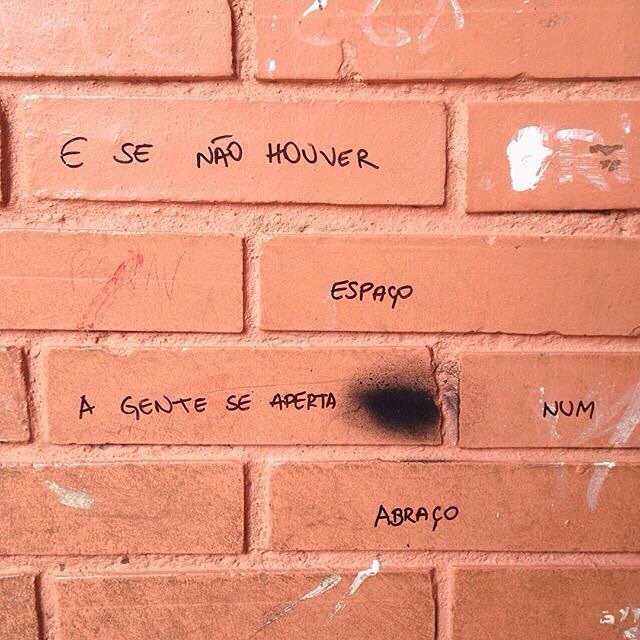 E SE NÃO HOUVER
ESPAÇO
A GENTE SE APERTA NUM
ABRAÇO